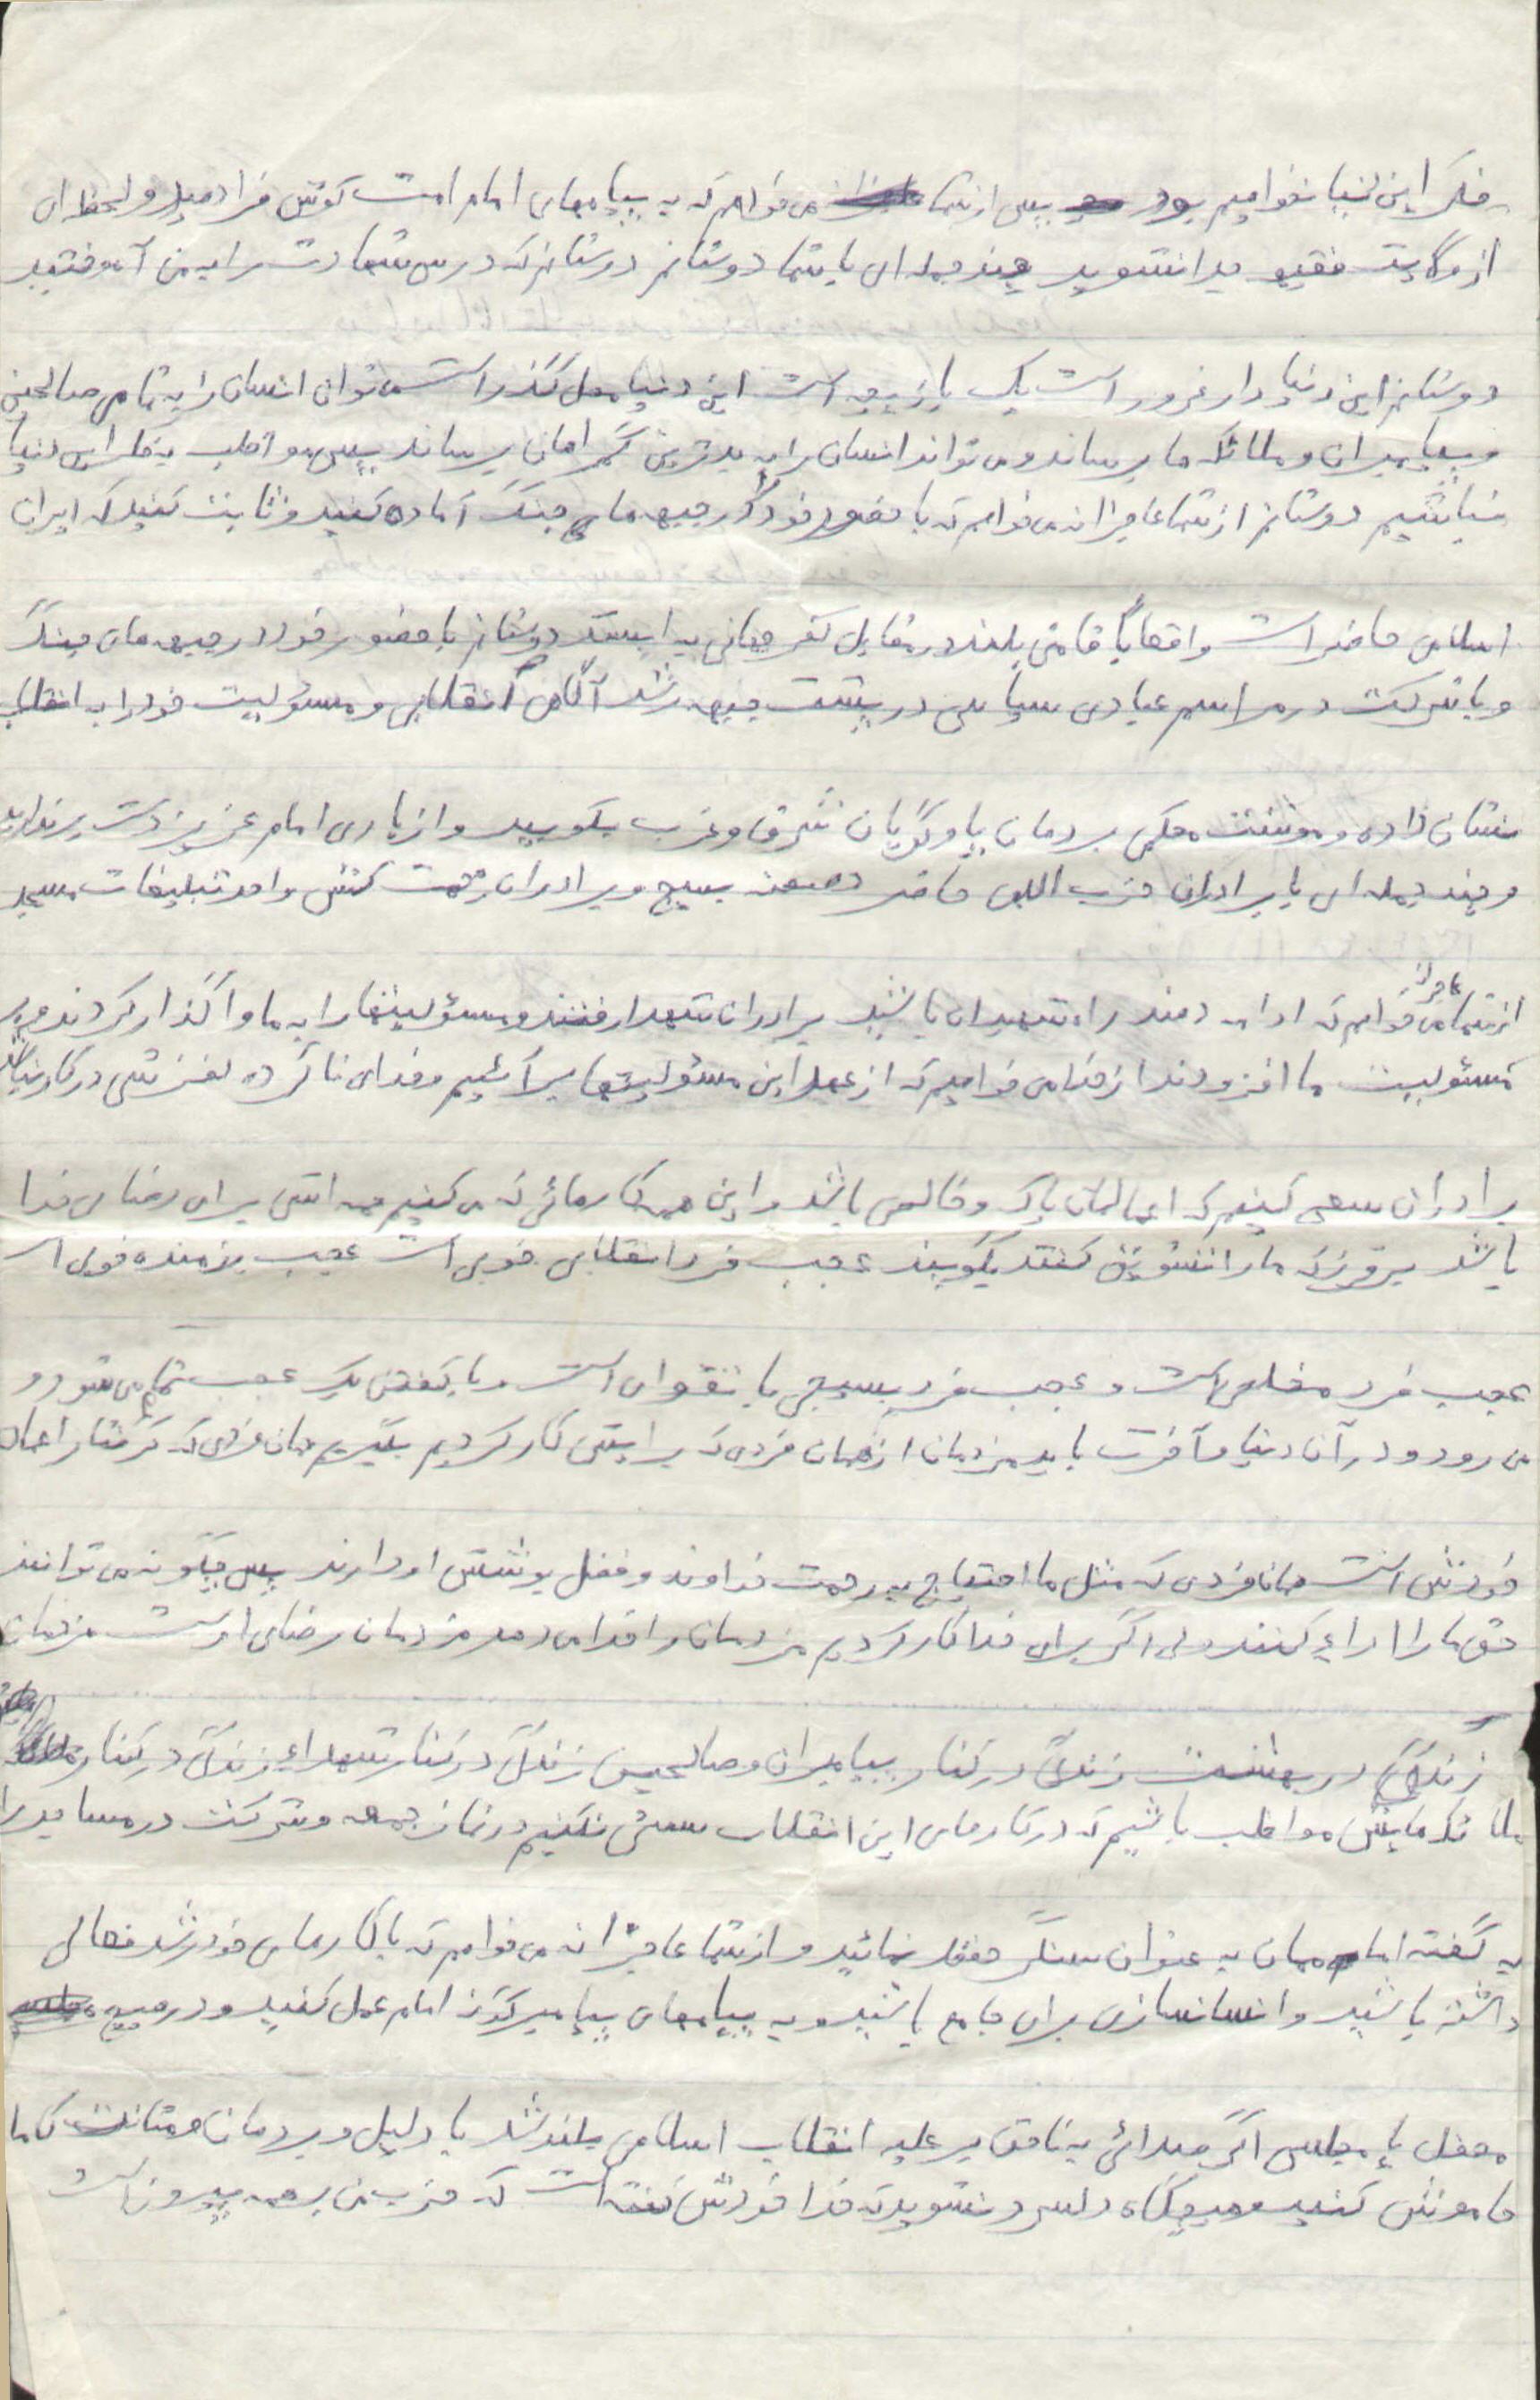 فکر این دنیا نخواهیم بود پس از شما می خواهم که به پیامهای امام امت گوش فرا دهید و لحظه ای
از ولایت فقیه جدا نشوید چند جمله ای با شما دوستانم دوستانم که درس شهادت را به من آموختید
دوستانم این دنیا دار غرور است یک بازیچه است این دنیا محل گذر است می توان انسان را به تمامی صالحین
و پیامبران و ملائکه ها برساند و می تواند انسان را به بدترین گمراهان برساند پس مواظب به فکر این دنیا
نباشیم دوستانم از شما عاجزانه می خواهم که با حضور خود در جبهه های جنگ آماده کنید و ثابت کنید که ایران
اسلامی حاضر است واقعاً با قامتی بلند در مقابل کفر جهانی به ایستد دوستانم با حضور خود در جبهه های جنگ
و با شرکت در مراسم عبادی سیاسی در پشت جبهه رشد آگاهی انقلابی و مسئولیت خود را به انقلاب
نشان داده و مشت محکمی بر دهان یاوه گویان شرق و غرب بکوبید و از یاری امام عزیز دست برندارید
و چند جمله ای با برادران حزب اللهی حاضر در صحنه بسیج و برادران زحمت کش واحد تبلیغات مسجد
از شما عاجزانه می خواهم که ادامه دهند راه شهیدان باشید برادران شهدا رفتند و مسئولیتها را به ما واگذار کردند و بر
مسئولیت ما افزودند از خدا می خواهیم که از عهد این مسئولیتها برآئیم و خدای ناکرده لغزشی در کارمان
برادران سعی کنیم که اعمالمان پاک و خالص باشد و این همه کارهائی که می کنیم همه اش برای رضای خدا
باشد برادران که ما را تشویق کنند بگویند عجب فرد انقلابی خوبی است عجب رزمنده خوبی است
عجب فرد مخلصی است و عجب فرد بسیجی با تقوای است و با گفتن یک عجب تمام می شود و
می رود و در آن دنیا و آخرت باید مزدمان از همان فردی که برایش کار کردیم بگیریم همان فردی که گرفتار اعمال
خودش است همان فردی که مثل ما احتیاج به رحمت خداوند و فضل بخشش او دارند پس چگونه می توانند
حق ما را اداء کنند ولی اگر برای خدا کار کردیم مزدمان را خدا می دهد مزدمان رضای اوست مزدمان
زندگی در بهشت زندگی در کنار پیامبران و صالحین زندگی در کنار شهداء زندگی در کنار
ملائکه هایش مواظب باشیم که در کارهای این انقلاب سستی نکنیم در نماز جمعه و شرکت در مساجد را
به گفته اماممان به عنوان سنگر حفظ نمائید و از شما عاجزانه می خواهم که با کارهای خود رشد فعالی
داشته باشید و انسانسازی برای جامع باشید و به پیامهای پیامبرگونه امام عمل کنید و در هیچ
محفل یا مجلسی اگر صدائی به ناحق بر علیه انقلاب اسلامی بلند شد با دلیل و برهان و متانت کاملا
خاموش کنید و هیچگاه دلسرد نشوید که خدا خودش گفته است که حزب من بر همه پیروز است